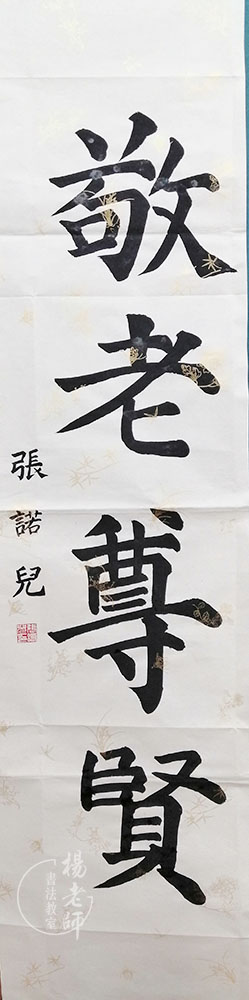 敬老尊賢
張諾兒
楊老師
書法教室